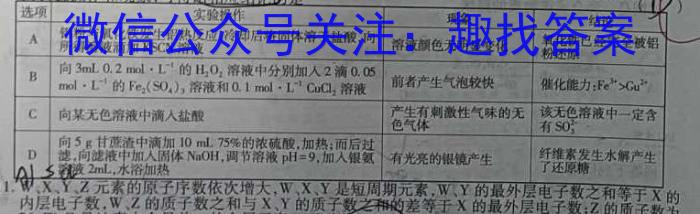 选项 实验操作 现 结
微信公众号关注：趣找答案
A 溶液颜色无明显变化
B 向 3mL 0.2 mol·L⁻¹ 的 H₂O₂ 溶液中分别加入 2 滴 0.05 mol·L⁻¹ 的 Fe₂(SO₄)₃ 溶液和 0.1 mol·L⁻¹ CuCl₂ 溶液 前者产生气泡较快 催化能力：Fe³⁺>Cu²⁺
C 向某无色溶液中滴入盐酸 产生有刺激性气味的无色气体 该无色溶液中一定含有 SO₃²⁻
D 向 5 g 甘蔗渣中滴加 10 mL 75%的浓硫酸，加热；而后过滤，向滤液中加入固体 NaOH，调节溶液 pH=9，加入银氨溶液 2mL，水浴加热 有光亮的银镜产生 纤维素发生水解产生了还原糖
1. W、X、Y、Z 元素的原子序数依次增大，W、X、Y 是短周期元素，W、Y 的最外层电子数之和等于 X 的
内层电子数，W、Z 的质子数之和与 X、Y 的质子数之和的差等于 X 的最外层电子数；Z 的质子数为